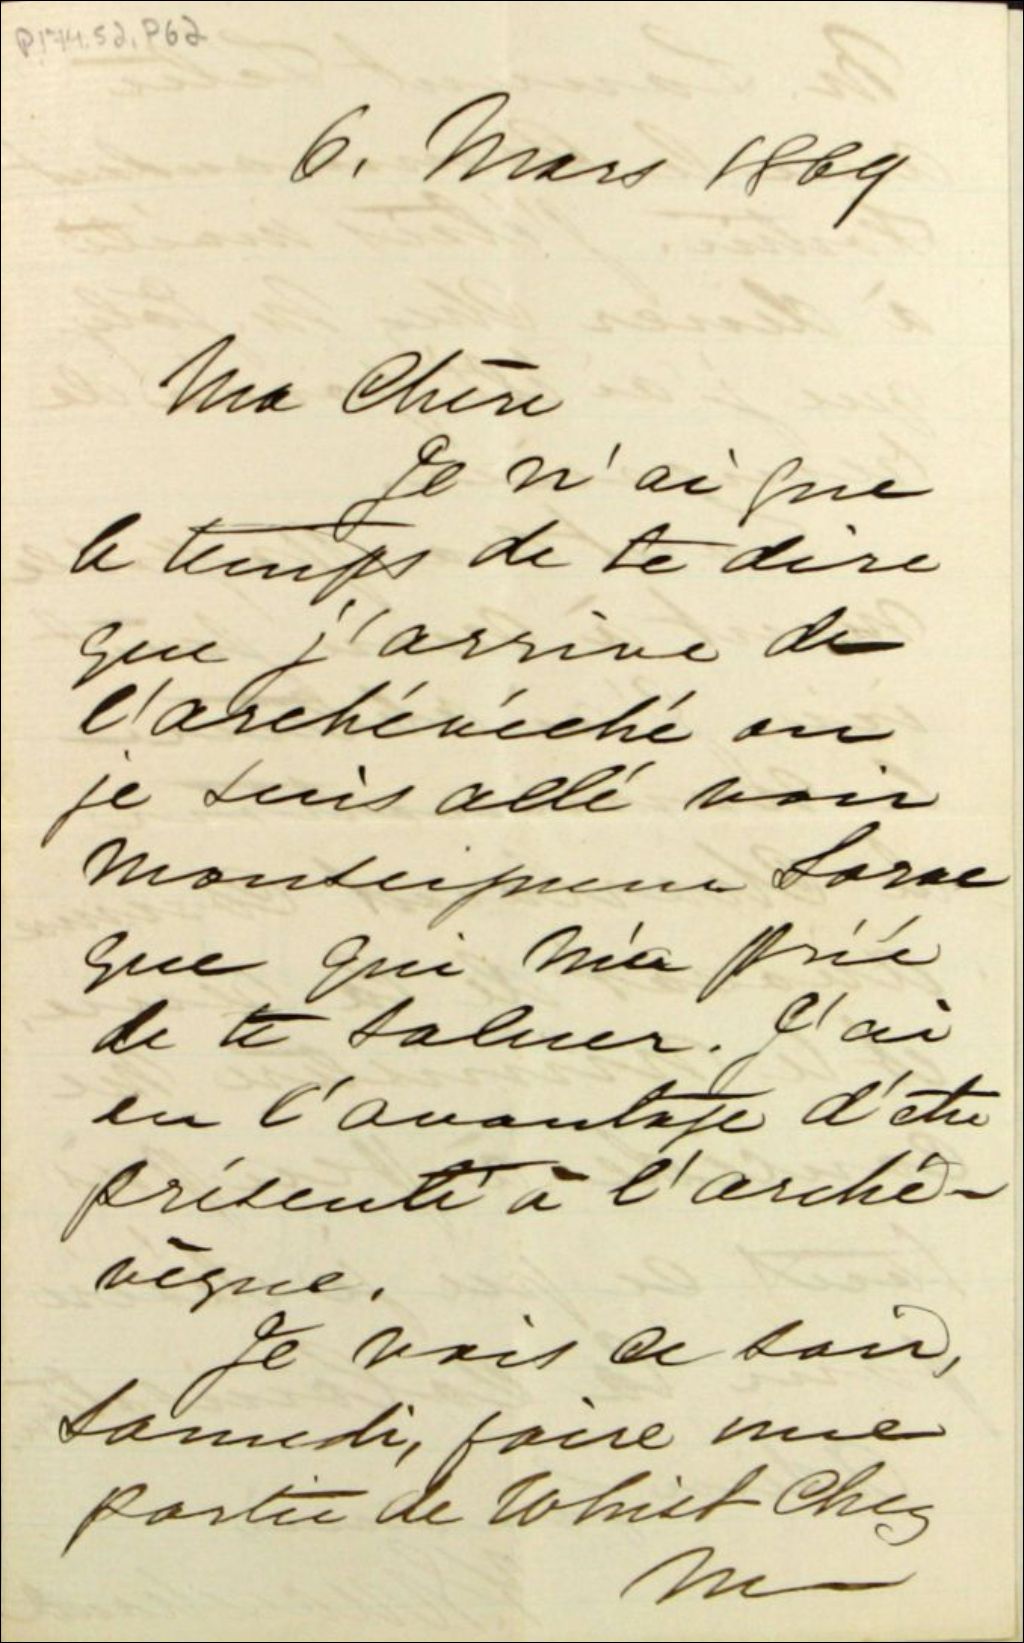 P174.S2,P62
6. Mars 1869
Ma Chère
Je n'ai que
le temps de te dire
que j'arrive de
l'archévêché ou
je suis allé voir
Monseigneur Laroc
que qui m'a prié
de te saluer. J'ai
eu l'avantage d'être
présenté à l'arche-
vêque.
Je vais ce soir,
Samedi, faire une
partie de Whist Chez
M